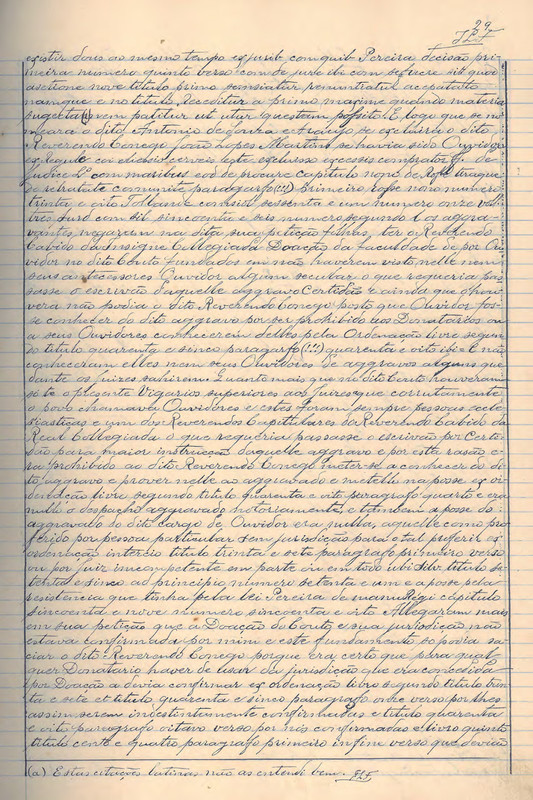 29
JLF
existir dous ao mesmo tempo ex jurib com quib Pereira decisão pri-
meira numero quinto verso com de jure ibi com se ferere sib quod
ascitione nove titulo primo
namque e no titulo Receditur a primo maxime quando materia
sugeita () vem patitur ut utur questam possito. E, logo que se no-
meara o dito, Antonio de Gouvea e Araujo se excluira o dito
Reverendo Conego João Lopes Martins se havia sido Ouvidor
capitulo nono de
se retratute comunite paragarfo (!!!) primeiro nono numero
trinta e oito sessenta e um numero onze vol-
tres sincoenta e seis numero segundo E os aggra-
vantes, negarem na dita sua petição filhas, ter o Reverendo
Cabido da Insigne Collegiada Doação da faculdade de por Ou-
vidor no dito Couto fundados em não haverem visto, nelle nem
seus antecessores Ouvidor algum secular o que requeria pas-
sasse o escrivão daquelle aggravo Certidão e ainda que o hou-
vera não podia o dito Reverendo Conego posto que Ouvidor fos-
se conhecer do dito aggravo por ser prohibido aos Donatarios ou
a seus Ouvidores conhecerem delles pela Ordenação livro segun-
do titulo quarenta e sinco paragarfo (!!!) quarenta e oito ibi E não
conheceram elles nem seus Ouvidores de aggravos alguns que
dante os juizes sahirem. Quanto mais que no dito Couto houveram
só té o presente Vigarios superiores aos juizes que corrutamente
o povo chamava Ouvidores e estes foram sempre pessoas eccle-
siasticas e um dos Reverendos Capitulares do Reverendo Cabido da
Real Collegiada o que requeria passasse o escrivão por Certi-
dão para maior instrucção daquelle aggravo e por esta rasão e-
ra prohibido ao dito Reverendo Conego meter-se a conhecer do di-
to aggravo e prover nelle ao aggravado e mettelo na posse ex or-
denação livro segundo titulo quarenta e oito paragrafo quarto e era
nullo o despacho aggravado notoriamente e tambem a posse do
aggravado do dito cargo de Ouvidor era nulla, aquelle como pro-
ferido por pessoa particular sem jurisdição para o tal proferir ex
ordenação intercio titulo trinta e sete paragrafo primeiro verso
ou por juiz incompetente em parte ou em todo ubi Silv. titulo se-
tenta e sinco ao principio numero setenta e um e a posse pela
resistencia que tenha pela lei Pereira de manu Regi capitulo
sincoenta e nove numero sincoenta e oito Allegaram mais
em sua petição que a Doação do Couto e sua jurisdição não
estava confirmada por mim e este fundamento se podia sa-
ciar o dito Reverendo Conego porque era certo que para qual-
quer Donatario haver de usar da jurisdição que era concedida
por Doação a devia confirmar ex ordenação livro segundo titulo trin-
ta e sete et titulo quarenta e sinco paragrafo onze verso por lhes
assim serem indestintamente confirmadas e titulo quarenta
e oito paragrafo oitavo verso por nós confirmadas e livro quinto
titulo cento e quatro paragrafo primeiro in fine verso que deviam
(a) Estas citações latinas não as entendi bem. JLF